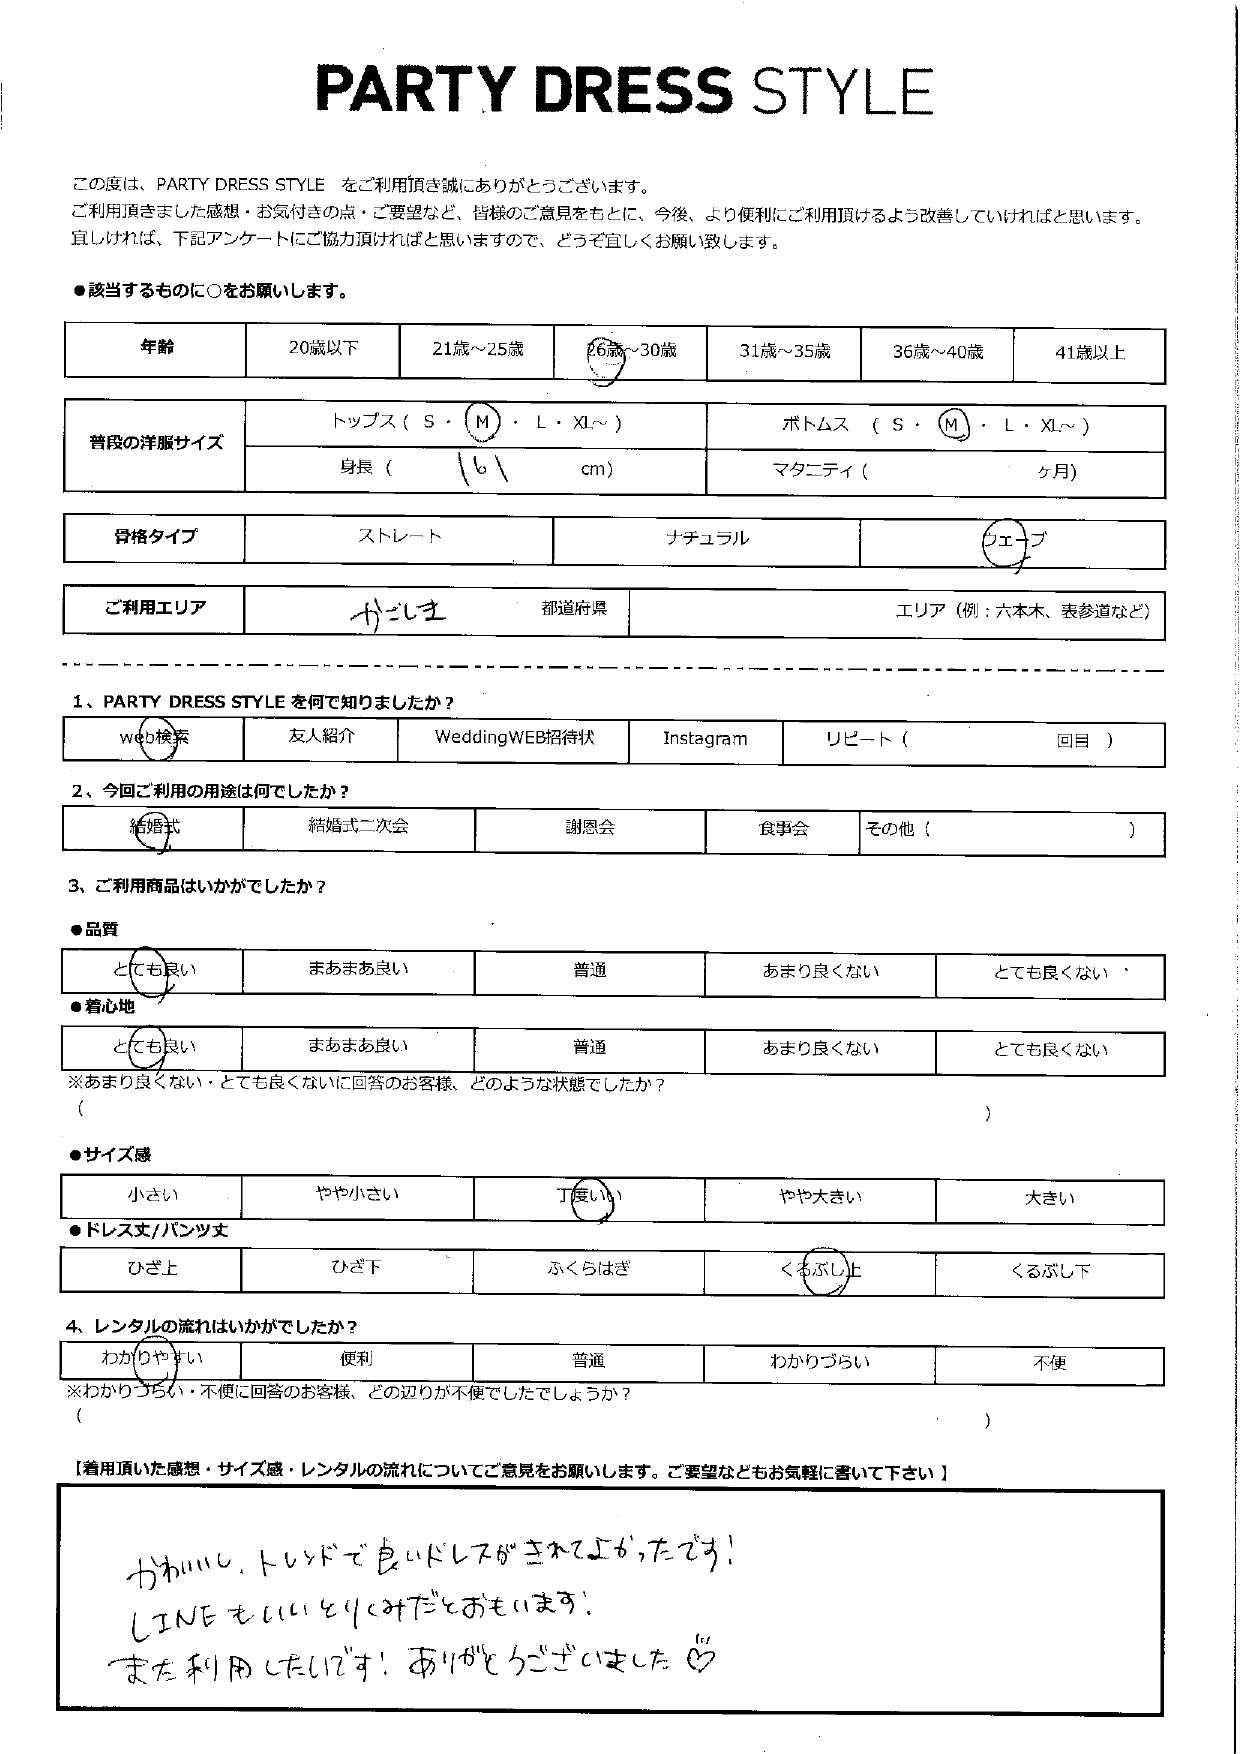 PARTY DRESS STYLE
この度は、PARTY DRESS STYLE をご利用頂き誠にありがとうございます。
ご利用頂きました感想・お気付きの点・ご要望など、皆様のご意見をもとに、今後、より便利にご利用頂けるよう改善していければと思います。
宜しければ、下記アンケートにご協力頂ければと思いますので、どうぞ宜しくお願い致します。
●該当するものに○をお願いします。
年齢 20歳以下 21歳～25歳 26歳～30歳 31歳～35歳 36歳～40歳 41歳以上
普段の洋服サイズ トップス ( S ・ M ・ L ・ XL～ ) ボトムス ( S ・ M ・ L ・ XL～ )
身長 ( 161 cm) マタニティ ( ヶ月)
骨格タイプ ストレート ナチュラル ウェーブ
ご利用エリア かごしま 都道府県 エリア（例：六本木、表参道など）
1、PARTY DRESS STYLE を何で知りましたか？
web検索 友人紹介 WeddingWEB招待状 Instagram リピート ( 回目 )
2、今回ご利用の用途は何でしたか？
結婚式 結婚式二次会 謝恩会 食事会 その他 ( )
3、ご利用商品はいかがでしたか？
●品質
とても良い まあまあ良い 普通 あまり良くない とても良くない
●着心地
とても良い まあまあ良い 普通 あまり良くない とても良くない
※あまり良くない・とても良くないに回答のお客様、どのような状態でしたか？
( )
●サイズ感
小さい やや小さい 丁度いい やや大きい 大きい
●ドレス丈/パンツ丈
ひざ上 ひざ下 ふくらはぎ くるぶし上 くるぶし下
4、レンタルの流れはいかがでしたか？
わかりやすい 便利 普通 わかりづらい 不便
※わかりづらい・不便に回答のお客様、どの辺りが不便でしたでしょうか？
( )
【着用頂いた感想・サイズ感・レンタルの流れについてご意見をお願いします。ご要望などもお気軽に書いて下さい 】
かわいいし、トレンドで良いドレスがきれてよかったです！
LINEもいいとりくみだとおもいます！
また利用したいです！ありがとうございました♡